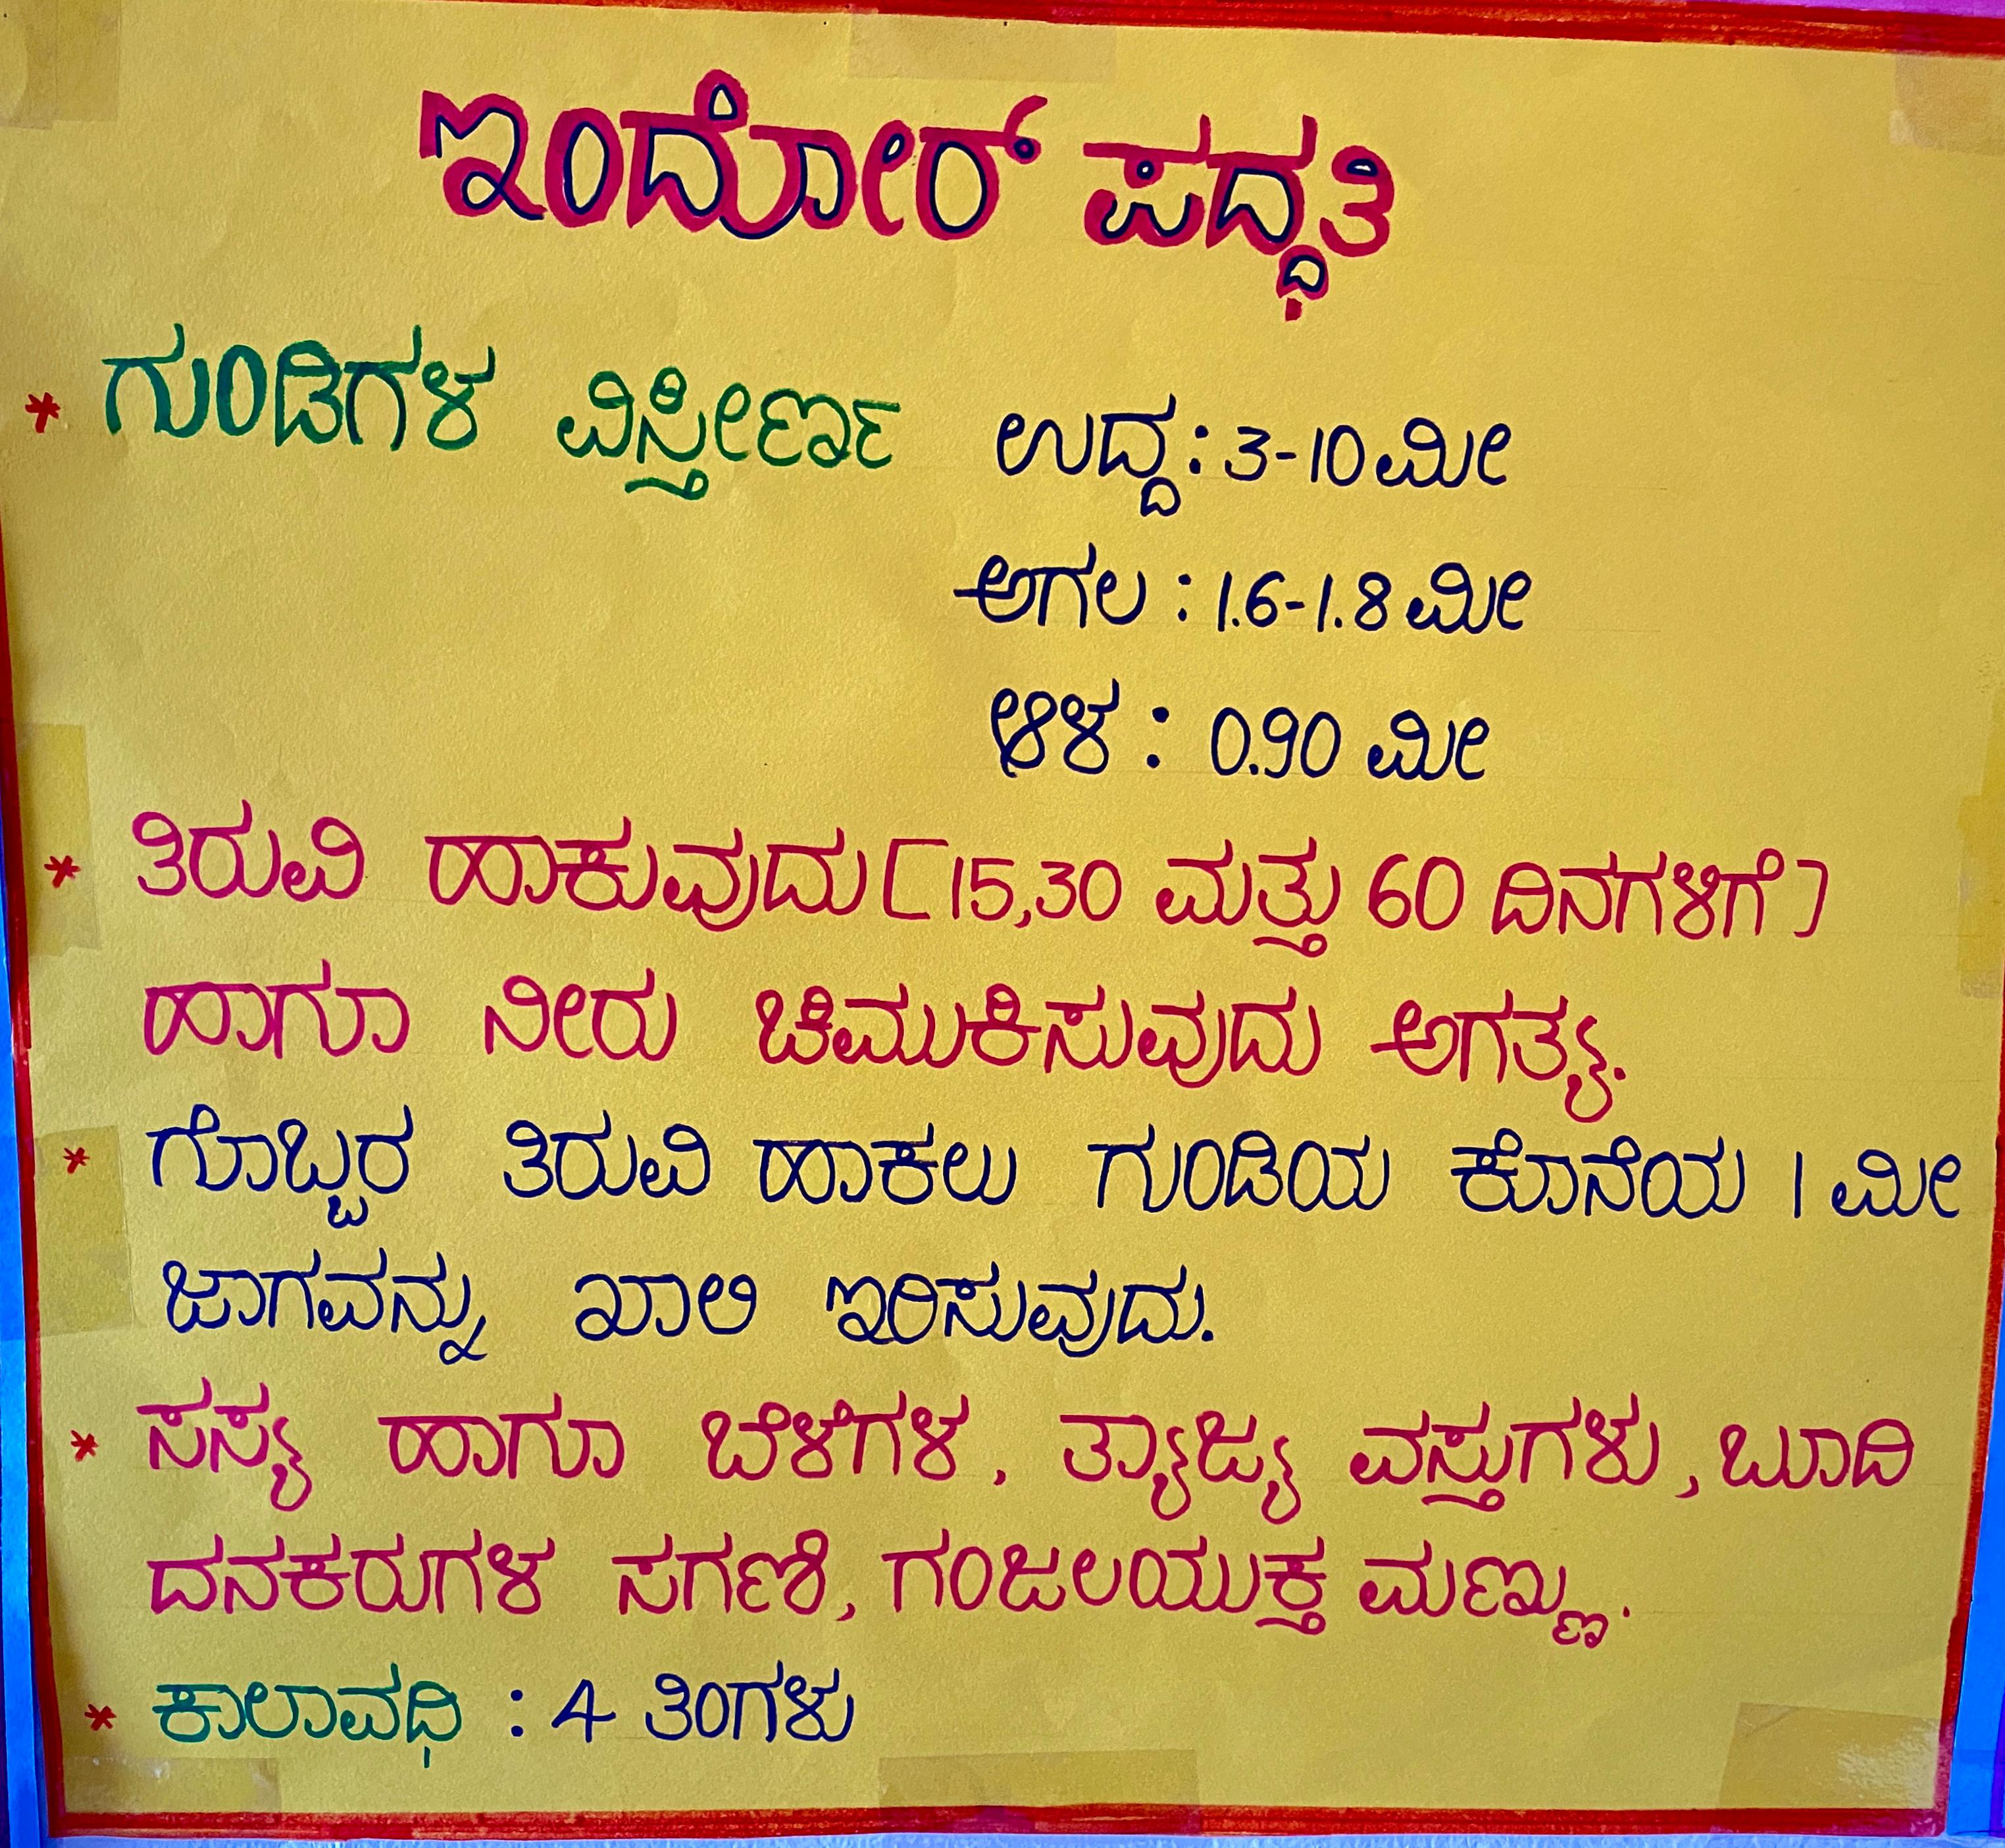 ಇಂದೋರ್ ಪದ್ಧತಿ
* ಗುಂಡಿಗಳ ವಿಸ್ತೀರ್ಣ ಉದ್ದ : 3-10 ಮೀ
ಅಗಲ : 1.6-1.8 ಮೀ
ಆಳ : 0.90 ಮೀ
* ತಿರುವಿ ಹಾಕುವುದು [15,30 ಮತ್ತು 60 ದಿನಗಳಿಗೆ]
ಹಾಗೂ ನೀರು ಚಿಮುಕಿಸುವುದು ಅಗತ್ಯ.
* ಗೊಬ್ಬರ ತಿರುವಿ ಹಾಕಲು ಗುಂಡಿಯ ಕೊನೆಯ 1 ಮೀ
ಜಾಗವನ್ನು ಖಾಲಿ ಇರಿಸುವುದು.
* ಸಸ್ಯ ಹಾಗೂ ಬೆಳೆಗಳ . ತ್ಯಾಜ್ಯ ವಸ್ತುಗಳು, ಬೂದಿ
ದನಕರುಗಳ ಸಗಣಿ, ಗಂಜಲಯುಕ್ತ ಮಣ್ಣು.
* ಕಾಲಾವಧಿ : 4 ತಿಂಗಳು